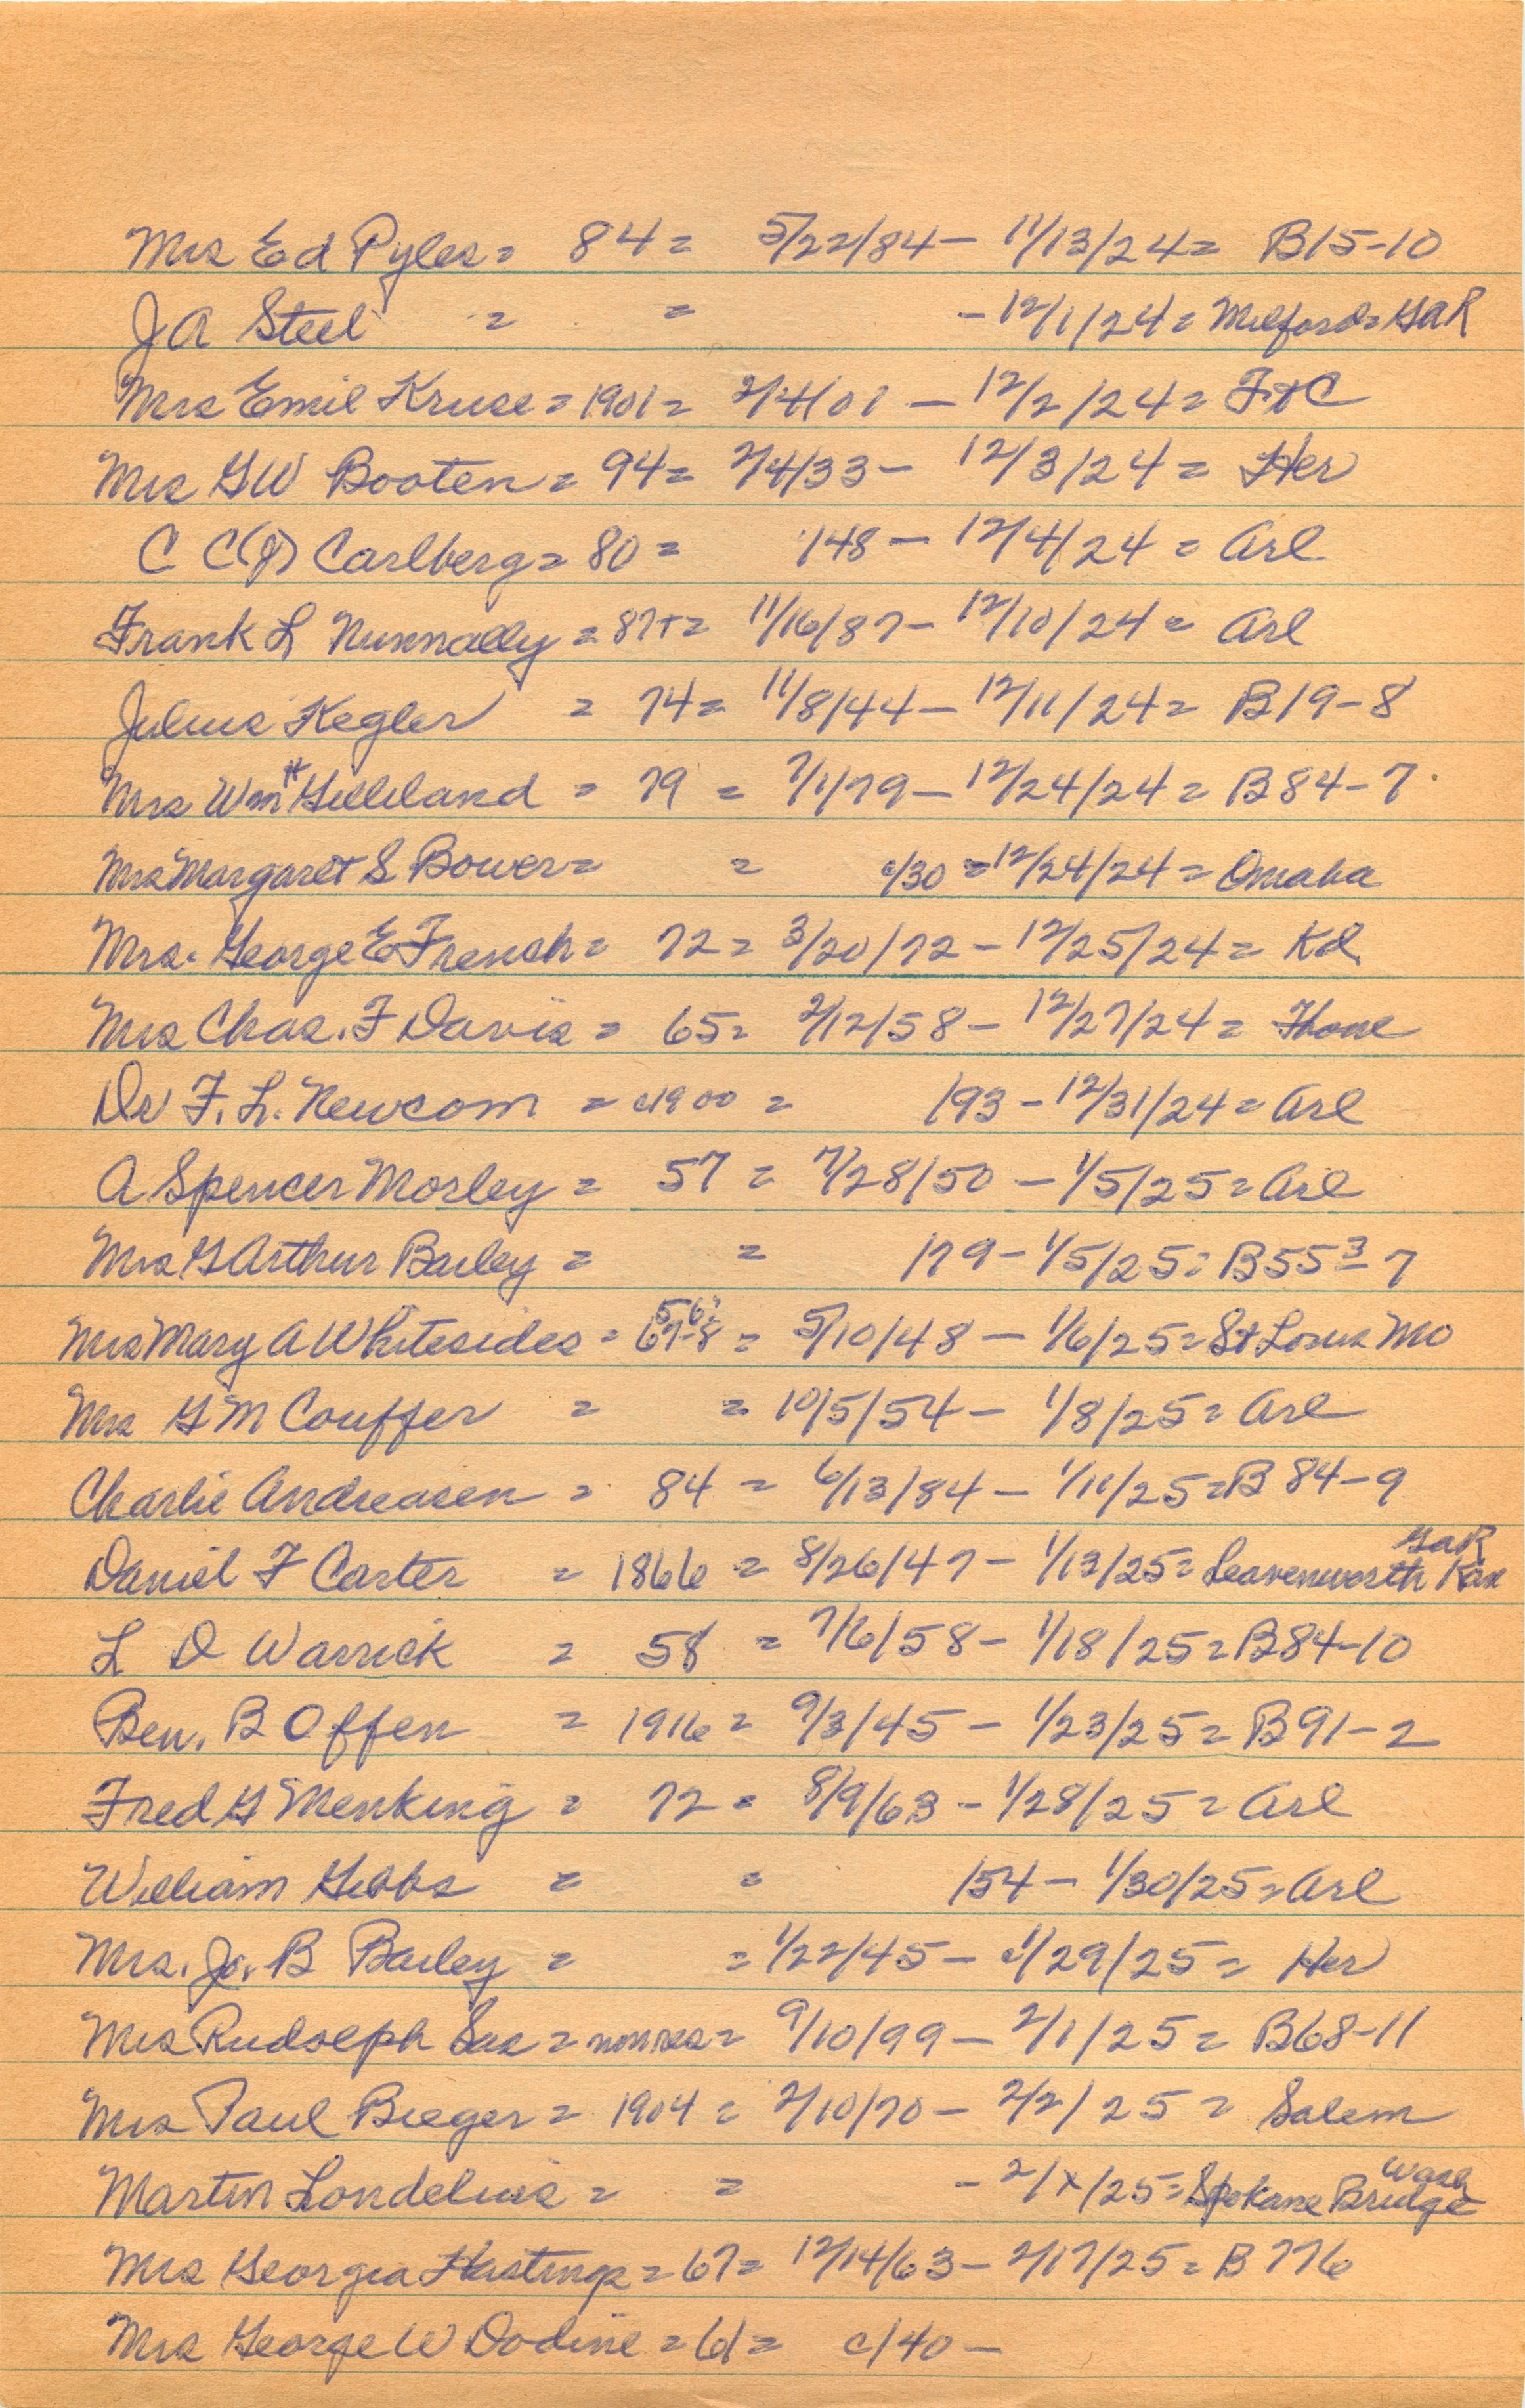 Mrs Ed Pyles = 84 = 5/22/84 - 11/13/24 = B15-10
J A Steel = = - 12/1/24 = Milford = GAR
Mrs Emil Kruse = 1901 = 2/4/01 - 12/2/24 = F+C
Mrs G W Booten = 94 = 2/4/33 - 12/3/24 = Her
C C(J) Carlberg = 80 = /48 - 12/4/24 = Arl
Frank L Nunnally = 87+ = 11/16/87 - 12/10/24 = Arl
Julius Kegler = 74 = 11/8/44 - 12/11/24 = B19-8
Mrs Wm H Gilleland = 79 = 7/1/79 - 12/24/24 = B84-7
Mrs Margaret S Bower = = c/30 = 12/24/24 = Omaha
Mrs. George E French = 72 = 3/20/72 - 12/25/24 = Kd
Mrs Chas. F Davis = 65 = 2/12/58 - 12/27/24 =
Dr F. L. Newcom = c1900 = /93 - 12/31/24 = Arl
A Spencer Morley = 57 = 7/28/50 - 1/5/25 = Arl
Mrs G Arthur Bailey = = /79 - 1/5/25 = B55 3-7
Mrs Mary A Whitesides = 56? 67-8 = 5/10/48 - 1/6/25 = St Louis Mo
Mrs G M Couffer = = 10/5/54 - 1/8/25 = Arl
Charlie Andreasen = 84 = 6/13/84 - 1/11/25 = B84-9
Daniel F Carter = 1866 = 8/26/47 - 1/13/25 = Leavenworth Kan GAR
L D Warrick = 58 = 7/6/58 - 1/18/25 = B84-10
Ben. B Offen = 1916 = 9/3/45 - 1/23/25 = B91-2
Fred G Menking = 72 = 8/9/63 - 1/28/25 = Arl
William Gibbs = = /54 - 1/30/25 = Arl
Mrs. Jo. B Bailey = = 1/22/45 - c1/29/25 = Her
Mrs Rudolph Sas = nonres = 9/10/99 - 2/1/25 = B68-11
Mrs Paul Bieger = 1904 = 2/10/70 - 2/2/25 = Salem
Martin Londelius = = - 2/x/25 = Spokane Bridge Wash
Mrs Georgia Hastings = 67 = 12/14/63 - 2/17/25 = B 776
Mrs George W Dodine = 61 = c/40 -